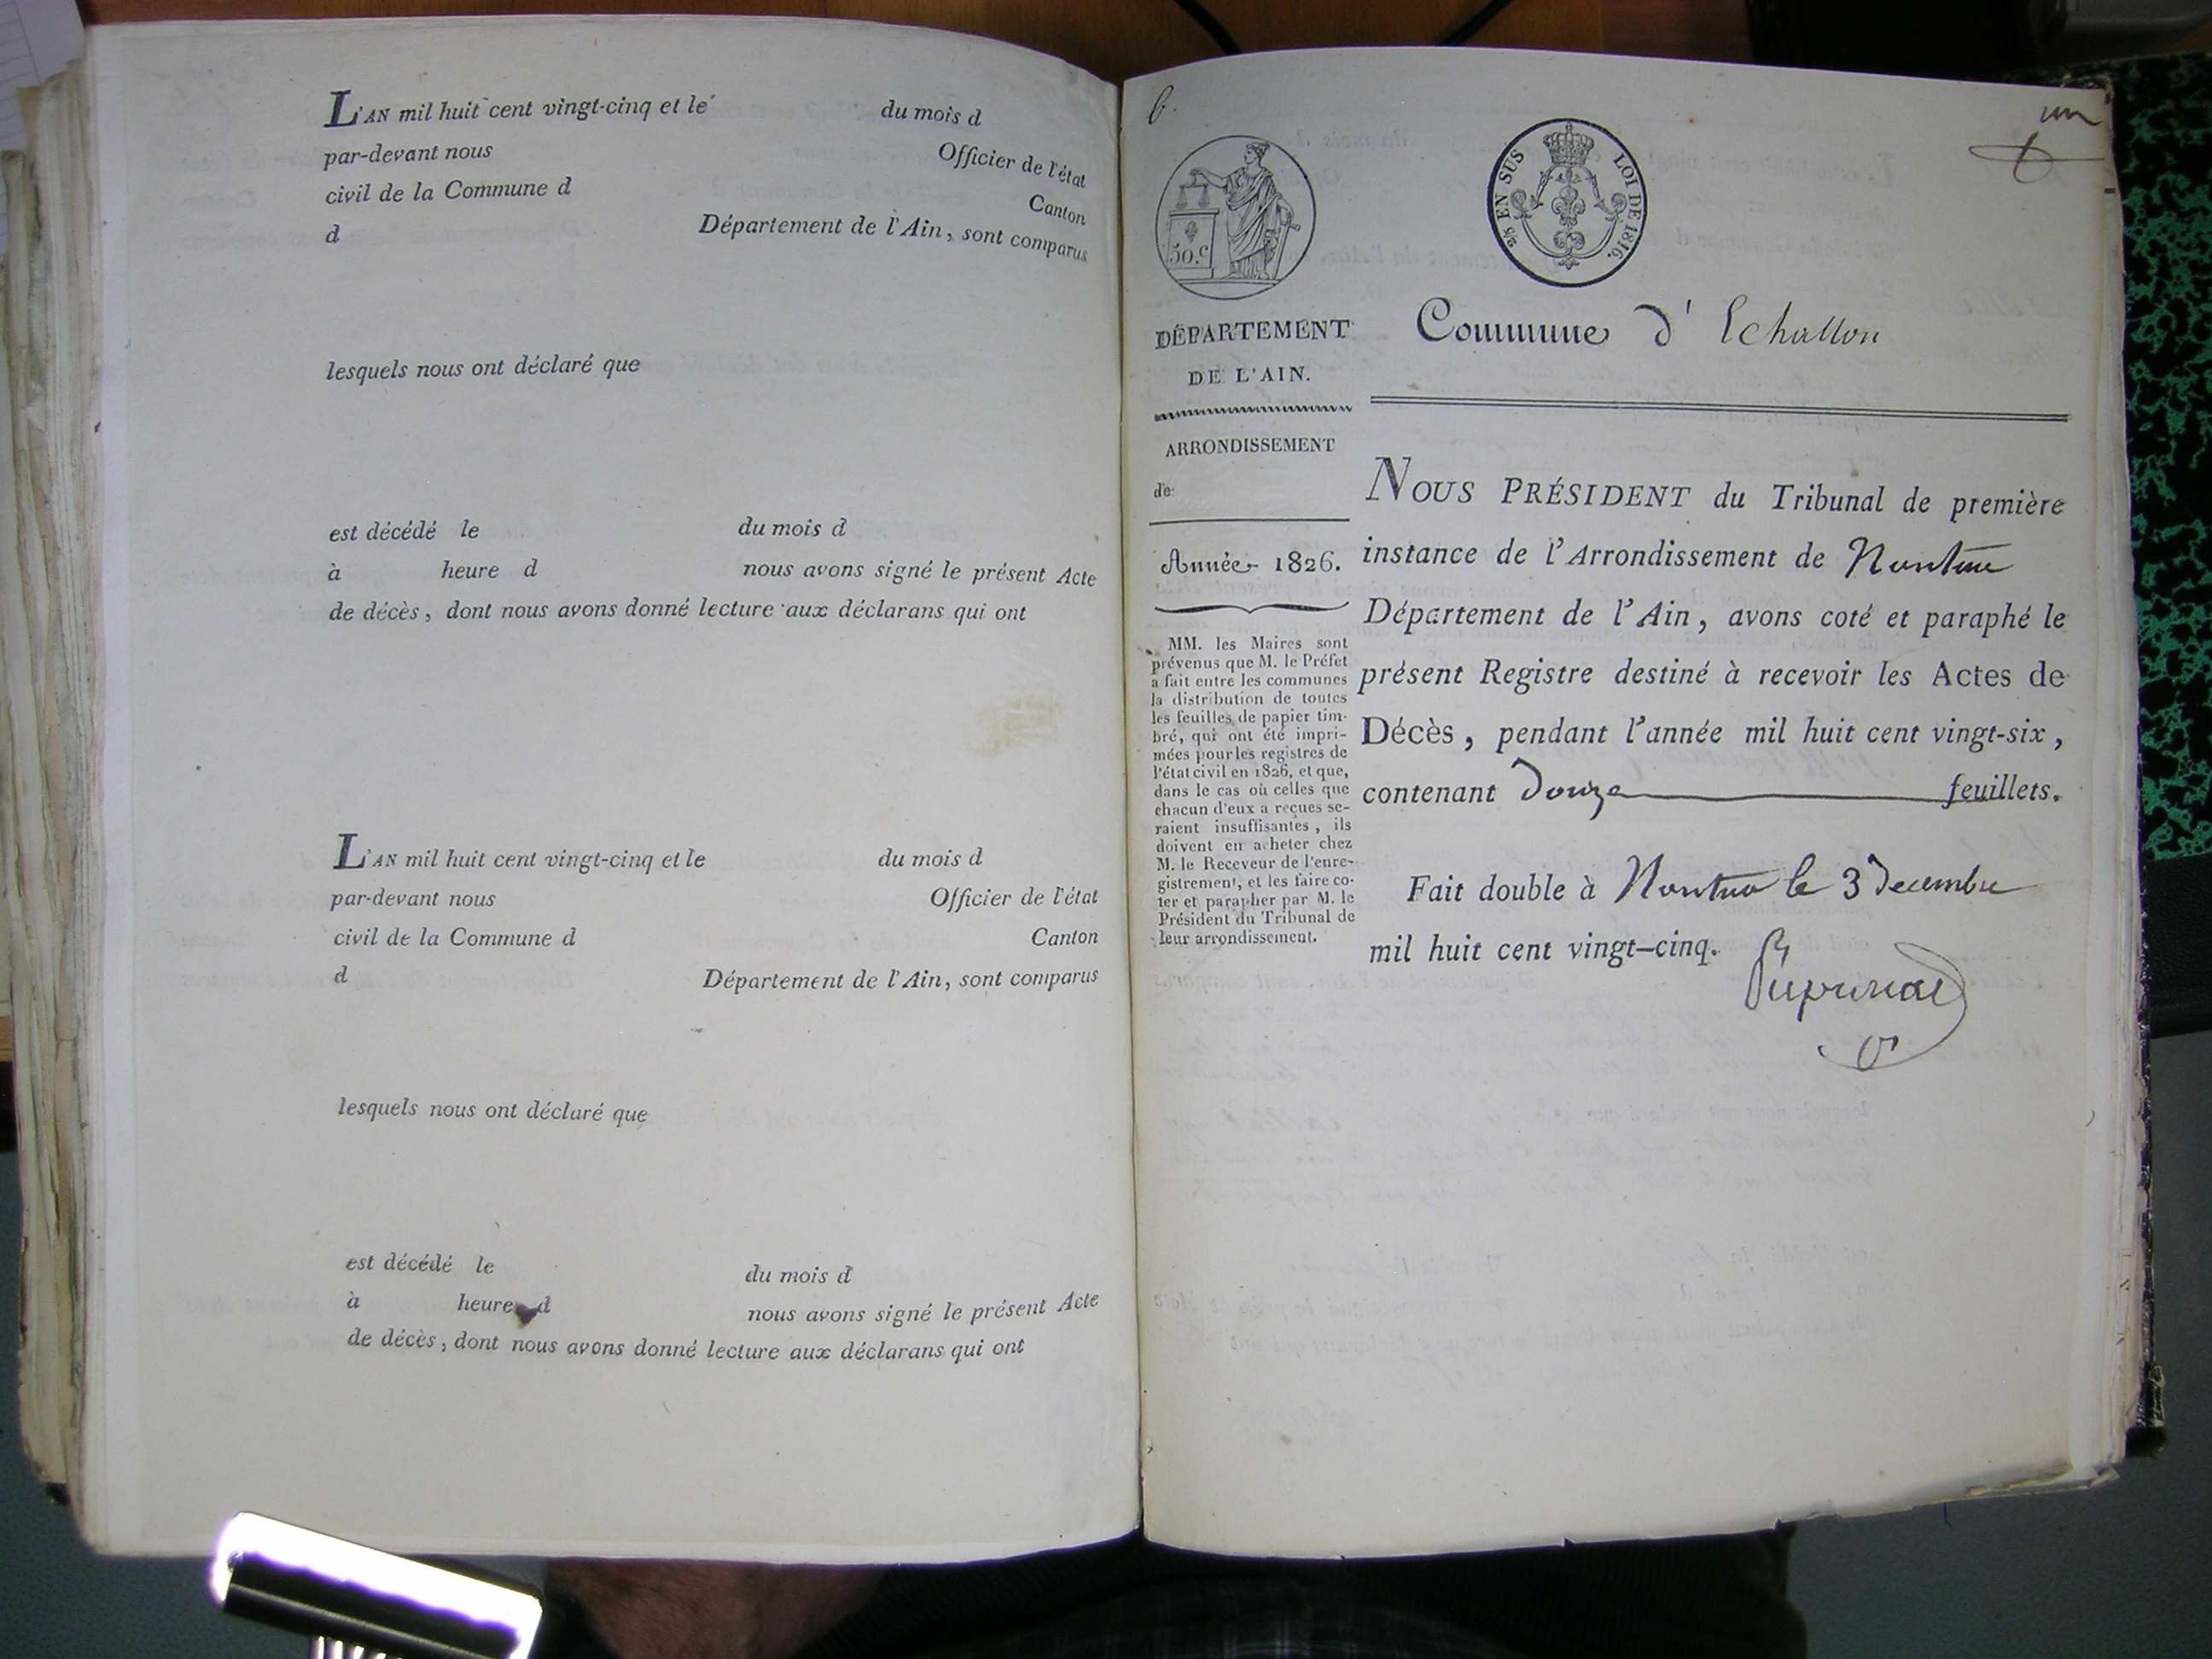 L'AN mil huit cent vingt-cinq et le du mois d
par-devant nous Officier de l'état
civil de la Commune d Canton
d Département de l'Ain, sont comparus
lesquels nous ont déclaré que
est décédé le du mois d
à heure d nous avons signé le présent Acte
de décès, dont nous avons donné lecture aux déclarans qui ont
L'AN mil huit cent vingt-cinq et le du mois d
par-devant nous Officier de l'état
civil de la Commune d Canton
d Département de l'Ain, sont comparus
lesquels nous ont déclaré que
est décédé le du mois d
à heure d nous avons signé le présent Acte
de décès, dont nous avons donné lecture aux déclarans qui ont
un
50.c
2/5 EN SUS LOI DE 1816.
DÉPARTEMENT
DE L'AIN.
ARRONDISSEMENT
de
Année 1826.
MM. les Maires sont
prévenus que M. le Préfet
a fait entre les communes
la distribution de toutes
les feuilles de papier tim-
bré, qui ont été impri-
mées pour les registres de
l'état civil en 1826, et que,
dans le cas où celles que
chacun d'eux a reçues se-
raient insuffisantes, ils
doivent en acheter chez
M. le Receveur de l'enre-
gistrement, et les faire co-
ter et parapher par M. le
Président du Tribunal de
leur arrondissement.
Commune d' Echallon
NOUS PRÉSIDENT du Tribunal de première
instance de l'Arrondissement de Nantua
Département de l'Ain, avons coté et paraphé le
présent Registre destiné à recevoir les Actes de
Décès, pendant l'année mil huit cent vingt-six,
contenant douze feuillets.
Fait double à Nantua le 3 decembre
mil huit cent vingt-cinq.